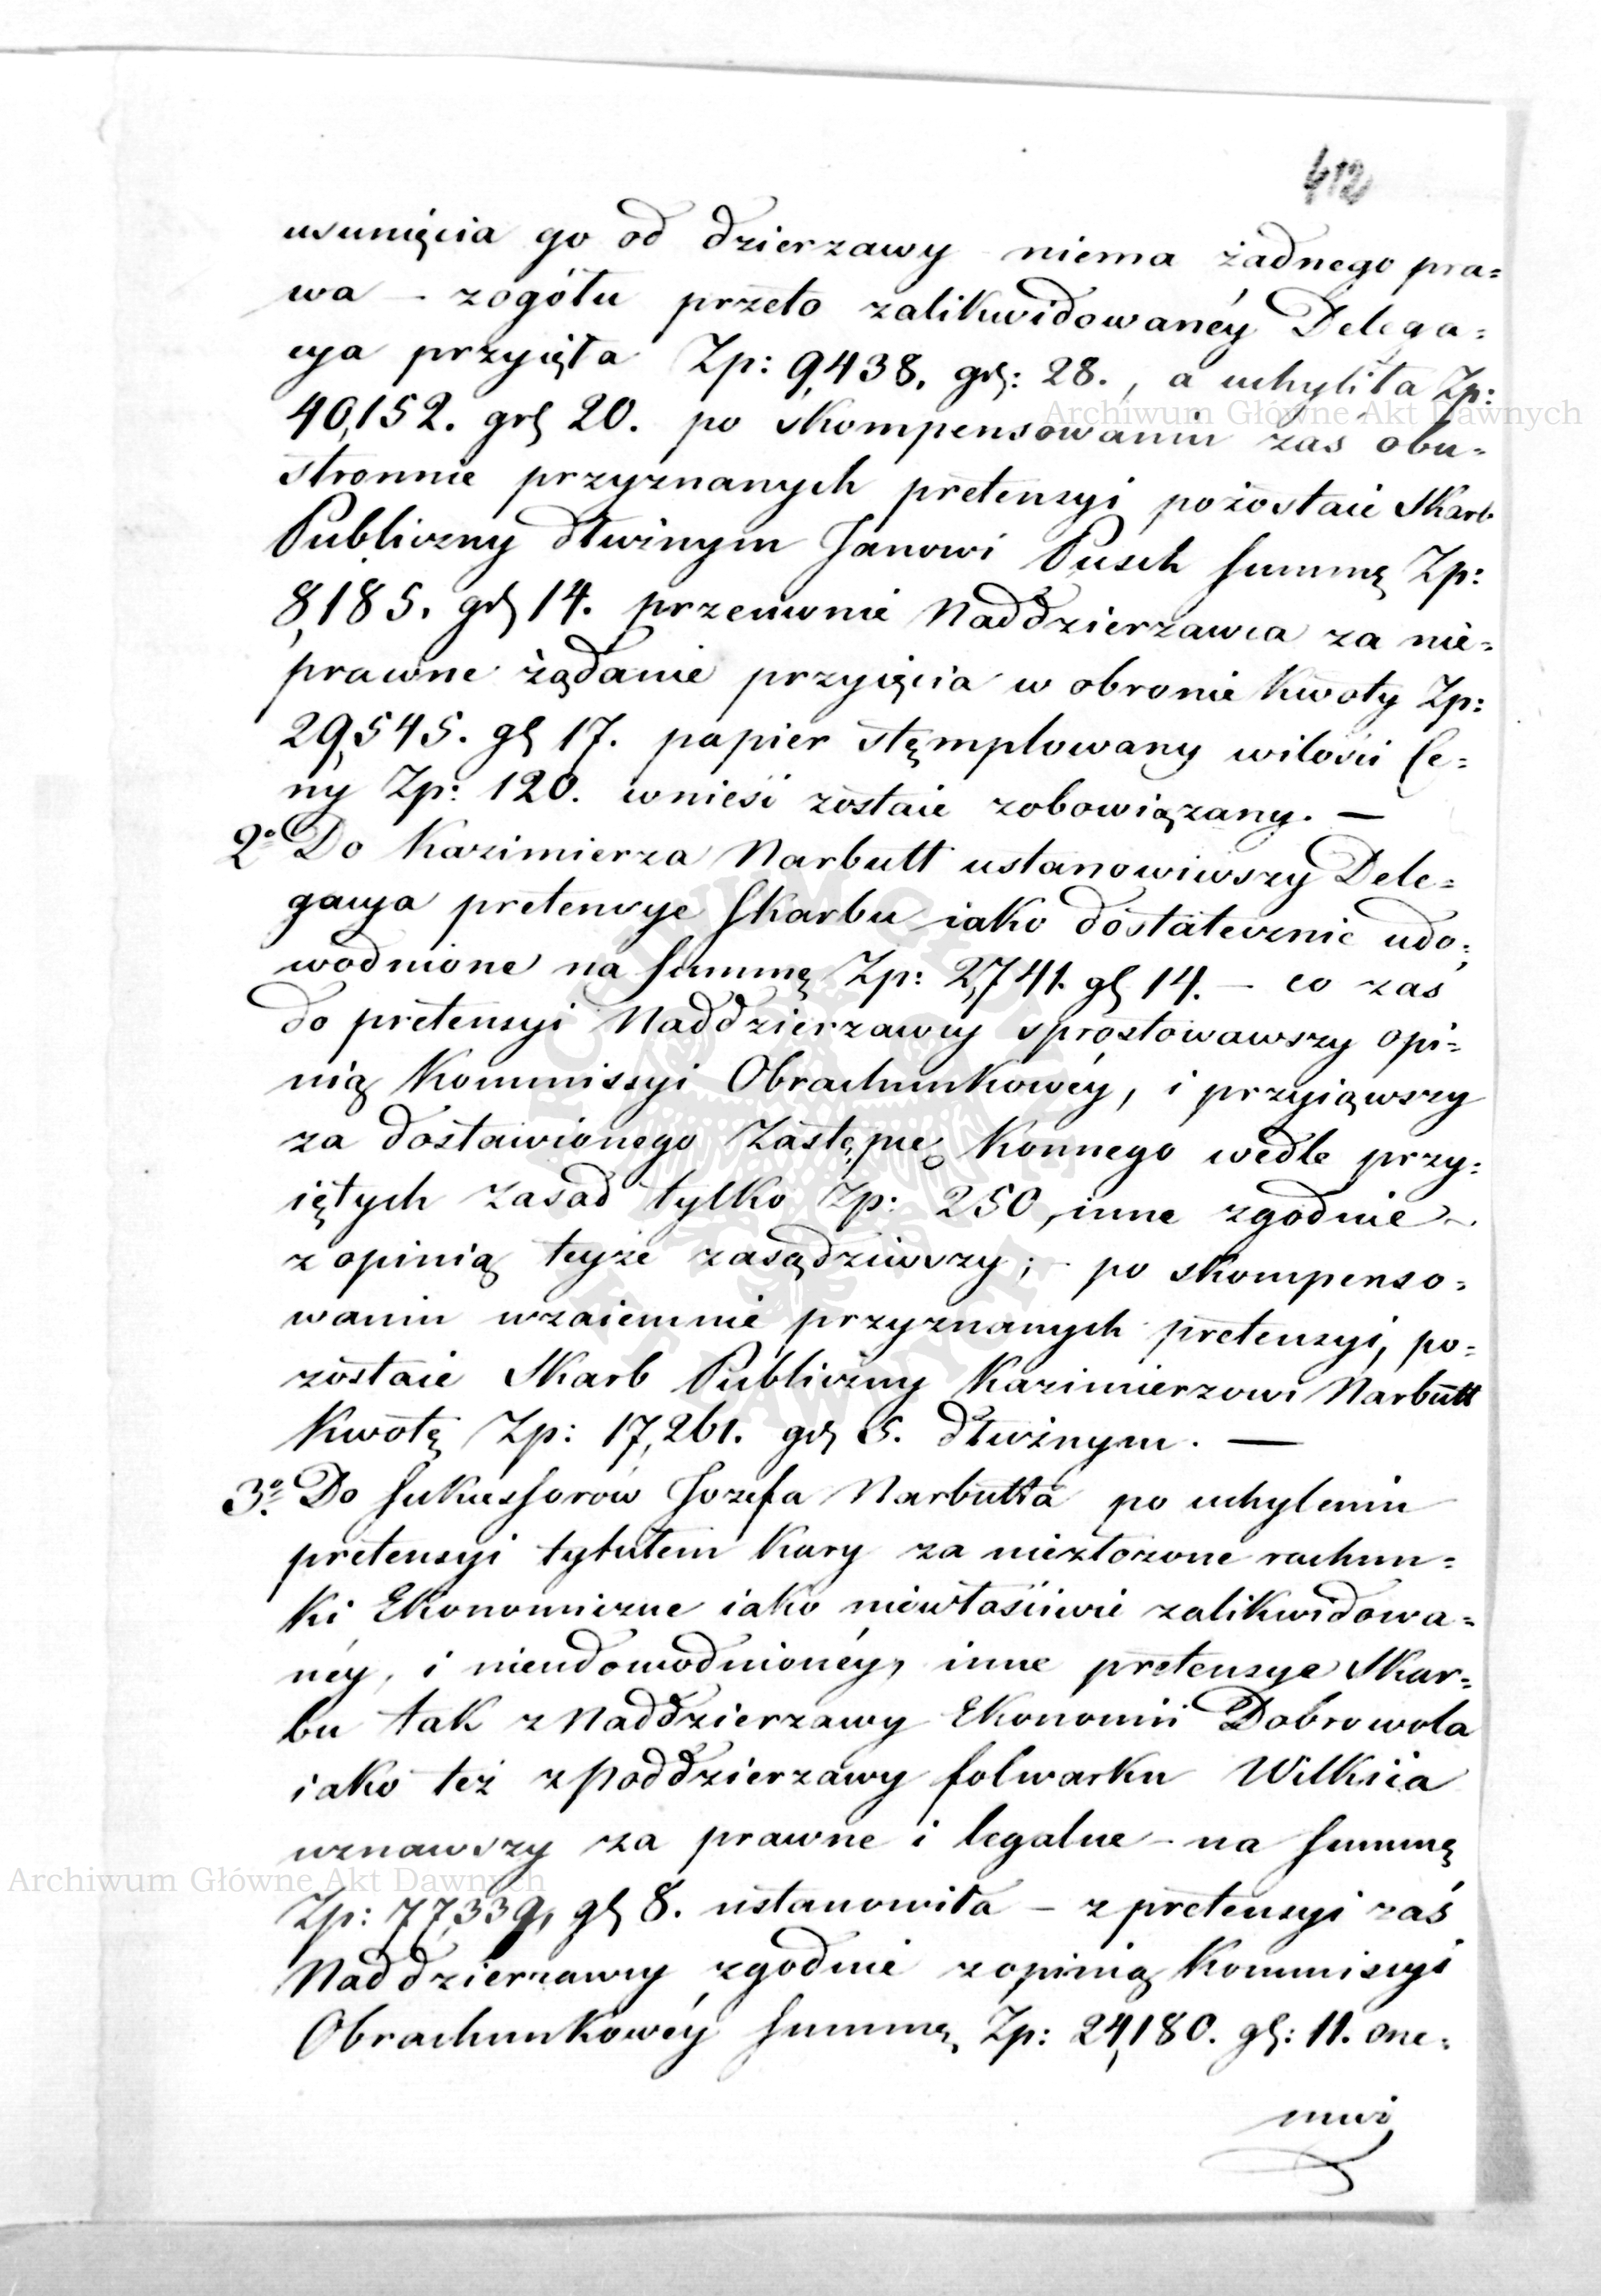 412
usunięcia go od dzierzawy niema żadnego pra=
wa – zogółu przeto zalikwidowanéy Delega=
cya przyięła Zp: 9,438. gr: 28., a uchyliła Zp:
40,152. gr 20. po skompensowaniu zas obu=
stronnie przyznanych pretensyi pozostaie Skarb
Publiczny dłużnym Janowi Pusch summę Zp:
8,185. gr 14. przeciwnie Naddzierzawca za nie=
prawne żądanie przyięcia w obronie kwoty Zp:
29,545. gr 17. papier stęmplowany wilości Ce=
ny Zp: 120. wnieść zostaie zobowiązany. —
2o Do Kazimierza Narbutt ustanowiwszy Dele=
gacya pretensye Skarbu iako dostatecznie udo=
wodnione na summę Zp: 2,741. gr 14. – co zaś
do pretensyi Naddzierzawcy sprostowawszy opi=
nią Kommissyi Obrachunkowéy, i przyiąwszy
za dostawionego Zastępcę Konnego wedle przy=
iętych zasad tylko Zp: 250, inne zgodnie
z opinią teyże zasądziwszy; – po skompenso=
waniu wzaiemnie przyznanych pretensyi, po=
zostaie Skarb Publiczny Kazimierzowi Narbutt
kwotę Zp: 17,261. gr 5. dłużnym. —
3o. Do Sukcessorów Jozefa Narbutta po uchyleniu
pretensyi tytułem Kary za niezłożone rachun=
ki Ekonomiczne iako niewłaściwie zalikwidowa=
néy, i nieudowodnionéy, inne pretensye Skar=
bu tak z Naddzierzawy Ekonomii Dobrowola
iako też z Poddzierzawy folwarku Wilkiia
uznawszy za prawne i legalne – na summę
Zp: 77,339, gr 8. ustanowiła – z pretensyi zaś
Naddzierzawcy zgodnie z opinią Kommissyi
Obrachunkowéy summę Zp: 24,180. gr: 11. one=
muż
Archiwum Główne Akt Dawnych
Archiwum Główne Akt Dawnych